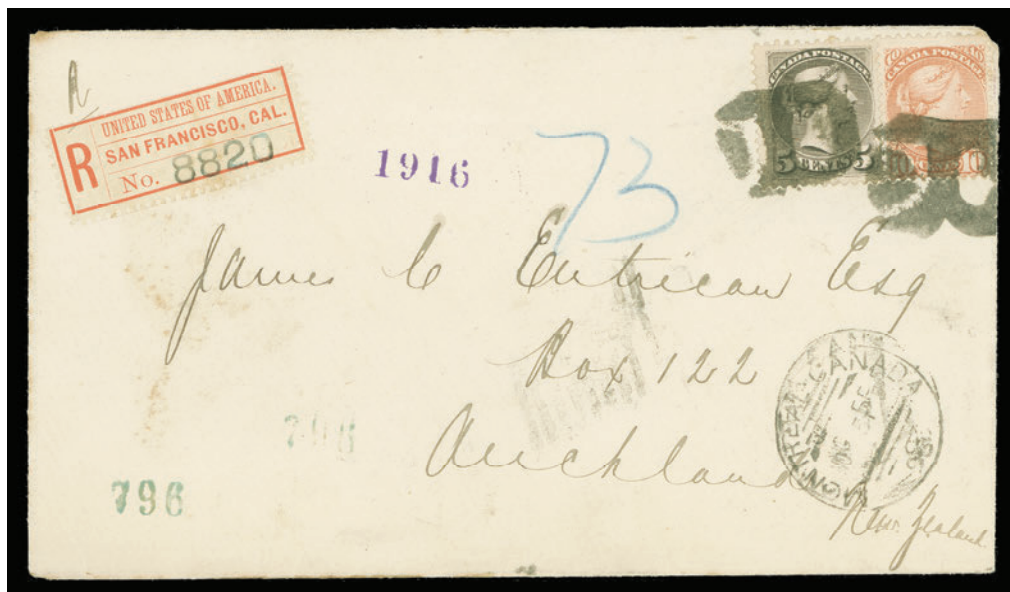 R
UNITED STATES OF AMERICA.
SAN FRANCISCO, CAL.
R
No. 8820
1916
73
CANADA POSTAGE
5 CENTS 5
CANADA POSTAGE
James C Entrican Esq
Box 122
Auckland
New Zealand
MONTREAL CANADA
CANADA
796